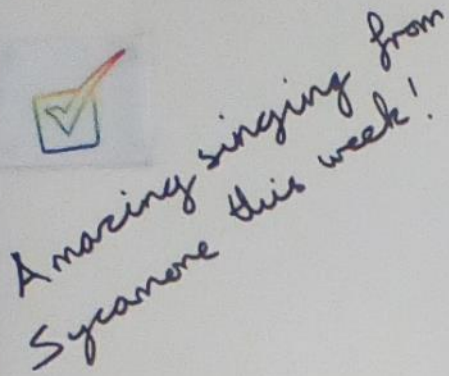 Amazing singing from
Sycamore this week!